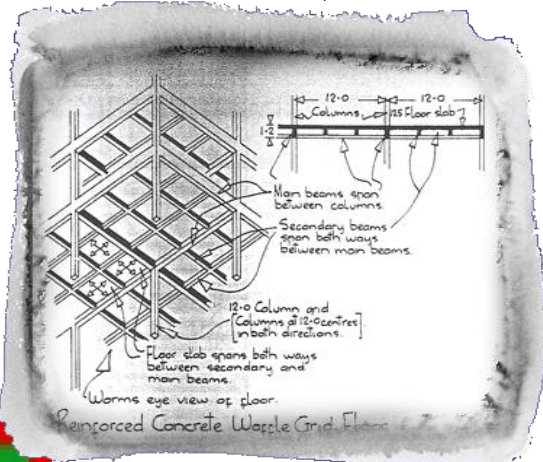 12-0 12-0
Columns 125 Floor slab
1-2
Main beams span
between columns.
Secondary beams
span both ways
between main beams.
12-0 Column and
[Columns at 12-0 centres]
in both directions.
Floor slab spans both ways
between secondary and
main beams.
Worms eye view of floor.
Reinforced Concrete Waffle Grid Floor